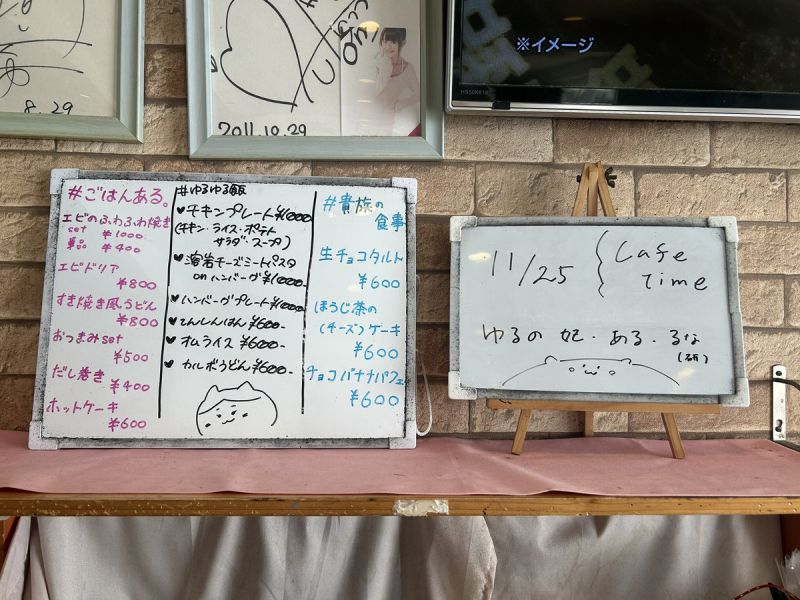 8.29
2011.10.29
※イメージ
#ごはんある。
エビのふわふわ焼き
set ¥1000
単品 ¥400
エビドリア
¥800
すき焼き風うどん
¥800
おつまみset
¥500
だし巻き
¥400
ホットケーキ
¥600
#ゆるゆる飯
♥チキンプレート¥1000
(チキン・ライス・ポテト
サラダ・スープ)
♥溶岩チーズミートパスタ
onハンバーグ¥1000-
♥ハンバーグプレート¥1000
♥てんしんはん¥600-
♥オムライス¥600-
♥カルボうどん¥600-
#貴族の
食事
生チョコタルト
¥600
ほうじ茶の
(チーズ)ケーキ
¥600
チョコバナナパフェ
¥600
11/25 { Cafe
Time
ゆるの 妃・ある・るな
(研)